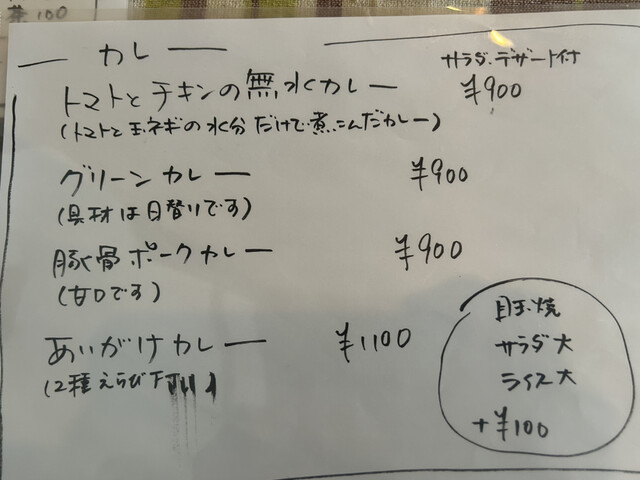 ¥100
カレー
サラダ、デザート付
トマトとチキンの無水カレー ¥900
(トマトと玉ネギの水分だけで煮こんだカレー)
グリーンカレー ¥900
(具材は日替りです)
豚骨ポークカレー ¥900
(甘口です)
あいがけカレー ¥1100
(2種えらび下
目玉焼
サラダ大
ライス大
+¥100